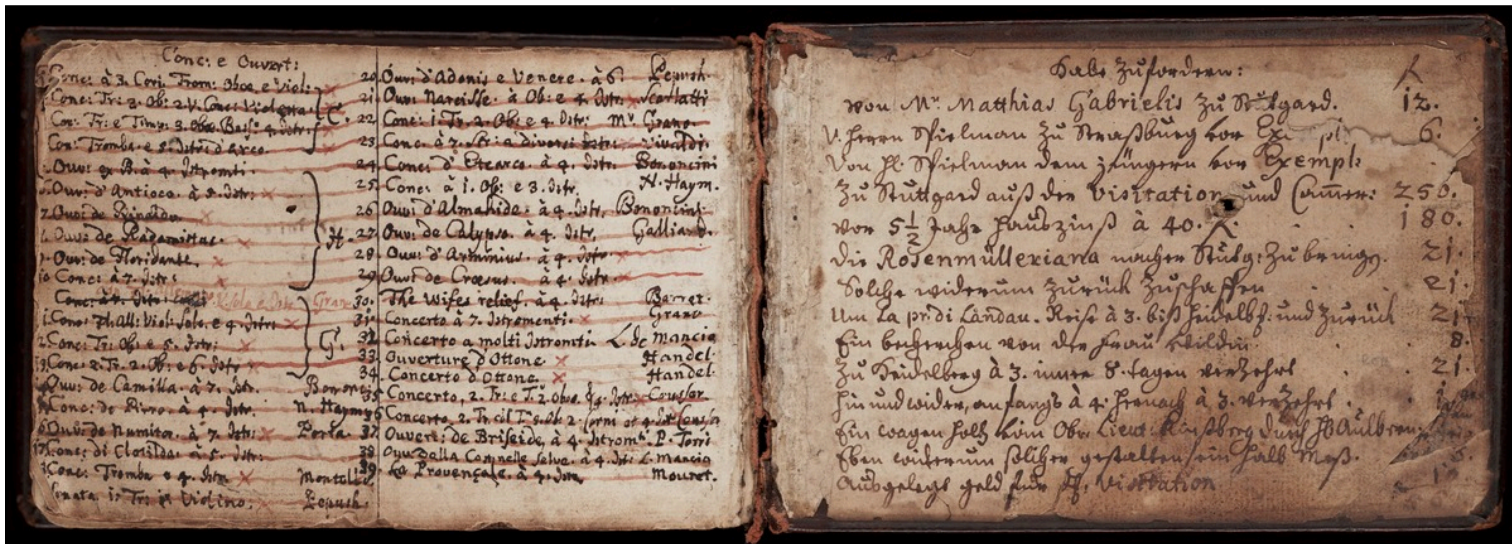 Conc: e Ouvert:
Conc: à 3. Cori. Trom: Oboe e Viol:
Conc: Tr: 3. Ob: 2. V. Conc: Viol
Con: Tr: e Timp: 3. Oboe Bass: 4. Istr:
Con: Tromba e 5. Istr: d'arco
C.
Ouv: à 4. Istromti.
Ouv: d'Antioco. à 5. Istr:
7. Ouv: de Rinaldo
Ouv: de Radamistus.
Ouv: de Floridante.
10 Conc: à 7. Istr:
H.
Conc: à Istr: Solo e Istr: Grano
1. Conc: Viol: Solo. e 4. Istr:
2. Conc: Tr: Ob: e 5. Istr:
3. Conc: 2. Tr: 2. Ob: e 6. Istr:
G.
Ouv: de Camilla. à 7. Istr. Bononci
Conc: de Pirro. à 4. Istr. N. Haym
6 Ouv: de Numitor. à 7. Istr: Porta.
17. Conc: di Clotilda: à 5. Istr:
Conc: Tromba e 4. Istr
Sonata 1. Tr: et Violino. Pepush.
20. Ouv: d'Adonis e Venere. à 6. Pepush.
21. Ouv: Narcisse. à Ob: e 4. Istr. Scarlatti
22. Conc: 1. Tr. 2. Ob: e 4. Istr: Mr. Grano.
23. Conc: à 7. Str: a diversi Istr: Vivaldi.
24. Conc: d'Etearco. à 4. Istr. Bononcini
25. Conc: à 1. Ob: e 3. Istr. N. Haym.
26. Ouv: d'Almahide. à 4. Istr. Bononcini.
27. Ouv: de Calypso. à 4. Istr. Galliard.
28. Ouv: d'Arminius. à 4. Istr.
29. Ouv: de Croesus. à 4. Istr.
30. The Wifes relief. à 4. Istr: Barret.
31. Concerto à 7. Istromenti. Grano
32. Concerto a molti Istromti L. de Mancia
33. Ouverture d'Ottone Handel
34. Concerto d'Ottone. Handel.
35. Concerto, 2. Tr: e T. 2. Oboe. e 4. Istr: Cousser.
36 Concerto, 2. Tr: 2. Corni et 4. Istr. Cousser
37. Ouvert: de Briseide, à 4. Istromti. P. Torri
38. Ouv. della Costnelle Salve. à 4. Istr. L. Mancia
39. La Provençale. à 4. Istr. Mouret.
Habe zufordern:
von Mr. Matthias Gabrielis zu Stutgard. 12.
V. Herrn Spielman zu Straßburg vor Exempl: 6.
Von H. Spielman dem jüngern vor Exempl:
Zu Stuttgard auß der Visitation und Camer: 250.
vor 5 1/2 Jahr Haußzinß à 40. 180.
die Rosenmülleriana nacher Stutg: zu bringn. 21.
Solche widerum zurück zuschaffen 21.
Um La pr: di Landau. Reise à 3. biß Heidelb: und zurück 21
Ein becherchen von der Frau Wildin 8.
Zu Heidelberg à 3. inner 8. tagen verzehrt 21
Hin und wider, anfangs à 4. hernach à 3. verzehrt.
Ein wagen Holtz vom Obr: Lieut:
Eben widerum solcher gestalten ein halb Meß.
Ausgelegt geld zur Visitation